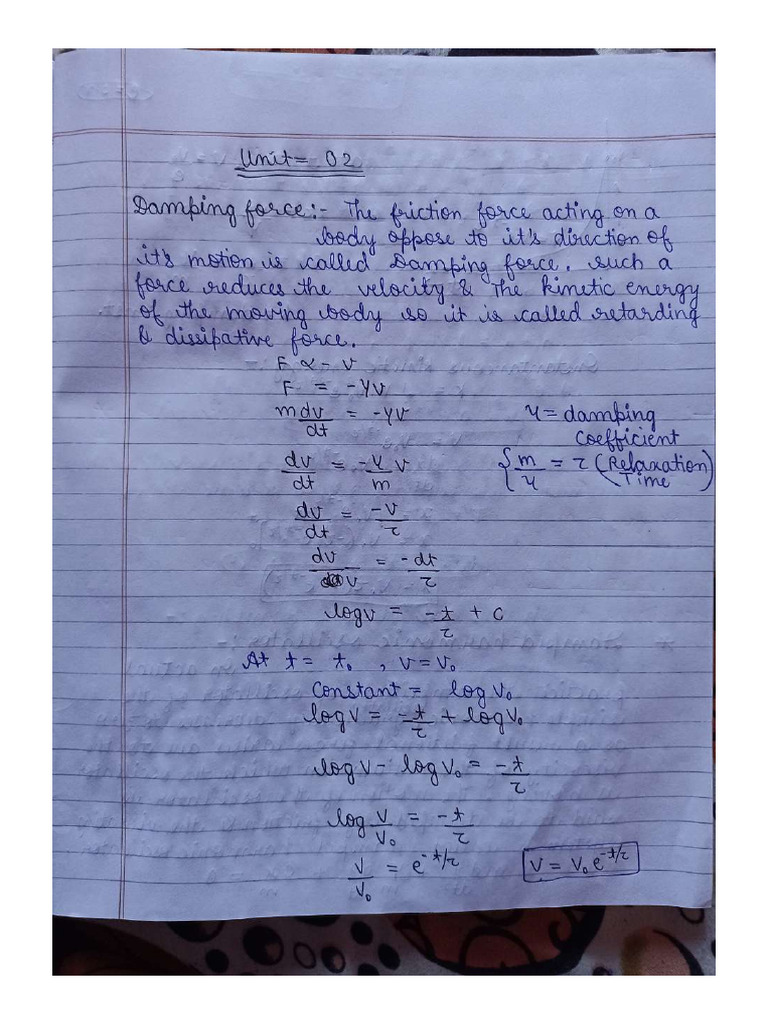 Unit= 02
Damping force:- The friction force acting on a
body oppose to it's direction of
it's motion is called Damping force. such a
force reduces the velocity & The kinetic energy
of the moving body so it is called retarding
& dissipative force.
F ∝ - v
F = -γv
m dv/dt = -γv
γ = damping
coefficient
dv/dt = -γ/m v
{ m/γ = τ (Relaxation Time)
dv/dt = -v/τ
dv/v = -dt/τ
logv = -t/τ + c
At t = t₀ , v = v₀
Constant = log v₀
log v = -t/τ + log v₀
log v - log v₀ = -t/τ
log v/v₀ = -t/τ
v/v₀ = e^-t/τ
v = v₀ e^-t/τ